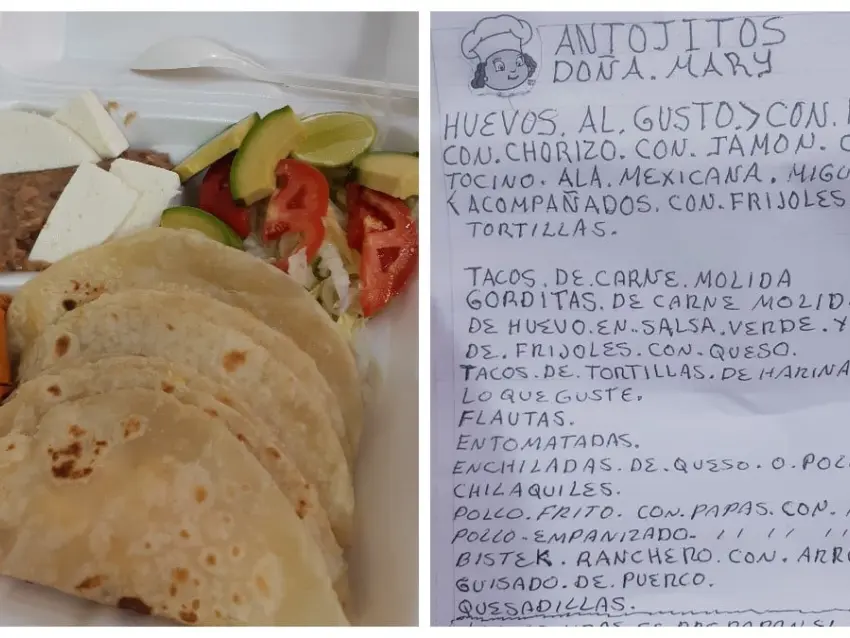 ANTOJITOS
DOÑA. MARY
HUEVOS. AL. GUSTO.>CON.
CON. CHORIZO. CON. JAMON.
TOCINO. ALA. MEXICANA.
< ACOMPAÑADOS. CON. FRIJOLES
TORTILLAS.
TACOS. DE. CARNE. MOLIDA
GORDITAS. DE CARNE MOLID
DE HUEVO. EN. SALSA. VERDE. Y
DE. FRIJOLES. CON. QUESO.
TACOS. DE. TORTILLAS. DE HARINA
LO QUE GUSTE.
FLAUTAS.
ENTOMATADAS.
ENCHILADAS. DE. QUESO. O. POL
CHILAQUILES.
POLLO. FRITO. CON. PAPAS. CON.
POLLO-EMPANIZADO- 11 11 11
BISTEK. RANCHERO. CON. ARR
GUISADO. DE. PUERCO.
QUESADILLAS.